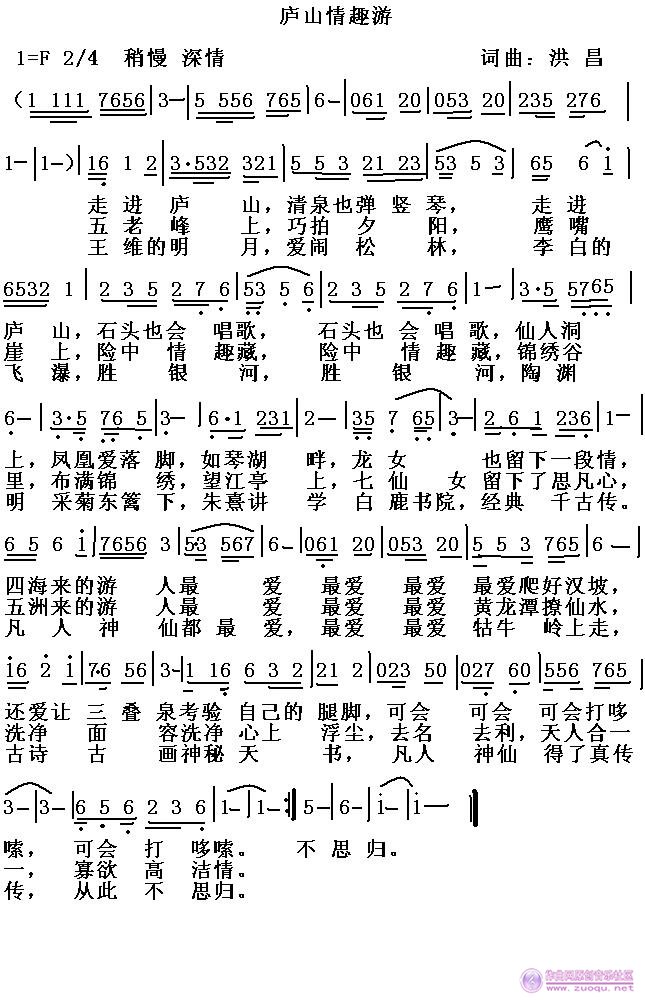 庐山情趣游
1=F 2/4 稍慢 深情 词曲：洪 昌
(1 111 7656 | 3— | 5 556 765 | 6— | 061 20 | 053 20 | 235 276 |
1— | 1—) | 16 1 2 | 3·532 321 | 5 5 3 21 23 | 53 5 3 | 65 6 i |
走 进 庐 山， 清泉也弹 竖 琴， 走 进
五 老 峰 上， 巧拍 夕 阳， 鹰 嘴
王 维的明 月， 爱闹 松 林， 李 白的
6532 1 | 2 3 5 2 7 6 | 53 5 6 | 2 3 5 2 7 6 | 1— | 3·5 5765 |
庐 山， 石头也会 唱歌， 石头也 会 唱 歌， 仙人洞
崖 上， 险中 情 趣藏， 险中 情 趣藏， 锦绣谷
飞 瀑， 胜 银 河， 胜 银 河， 陶 渊
6— | 3·5 76 5 | 3— | 6·1 231 | 2— | 35 7 65 | 3— | 2 6 1 236 | 1— |
上， 凤凰爱落 脚， 如琴湖 畔， 龙 女 也留下一段情，
里， 布满锦 绣， 望江亭 上， 七 仙 女 留下了思凡心，
明 采菊东篱 下， 朱熹讲 学 白 鹿书院， 经典 千古传。
6 5 6 i | 7656 3 | 53 567 | 6— | 061 20 | 053 20 | 5 5 3 765 | 6— |
四海来的游 人最 爱 最爱 最爱 最爱爬好汉坡，
五洲来的游 人最 爱 最爱 最爱 黄龙潭撩仙水，
凡 人 神 仙都 最 爱， 最爱 最爱 牯牛 岭上走，
i6 2 i | 7·6 56 | 3— | 1 16 6 3 2 | 21 2 | 023 50 | 027 60 | 556 765 |
还爱让 三叠 泉考验 自己的 腿脚， 可会 可会 可会打哆
洗净 面 容洗净 心上 浮尘， 去名 去利， 天人合一
古诗 古 画神秘 天 书， 凡人 神仙 得了真传
3— | 3— | 6 5 6 2 3 6 | 1— | 1— :| 5— | 6— | i— | i— ||
嗦， 可会 打 哆嗦。 不 思 归。
一， 寡欲 高 洁情。
传， 从此 不 思归。
作曲网原创音乐社区
www.zuoqu.net